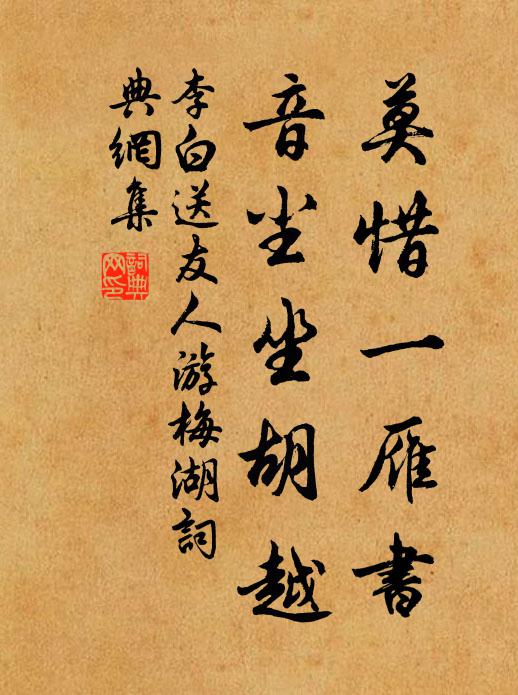 莫惜一雁書
音尘坐胡越
李白送友人游梅湖詞
典網集
詞典网印